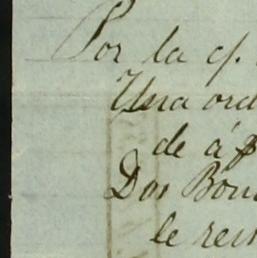 Por la cf.
Una ord
de á
Dos Bou
le rem